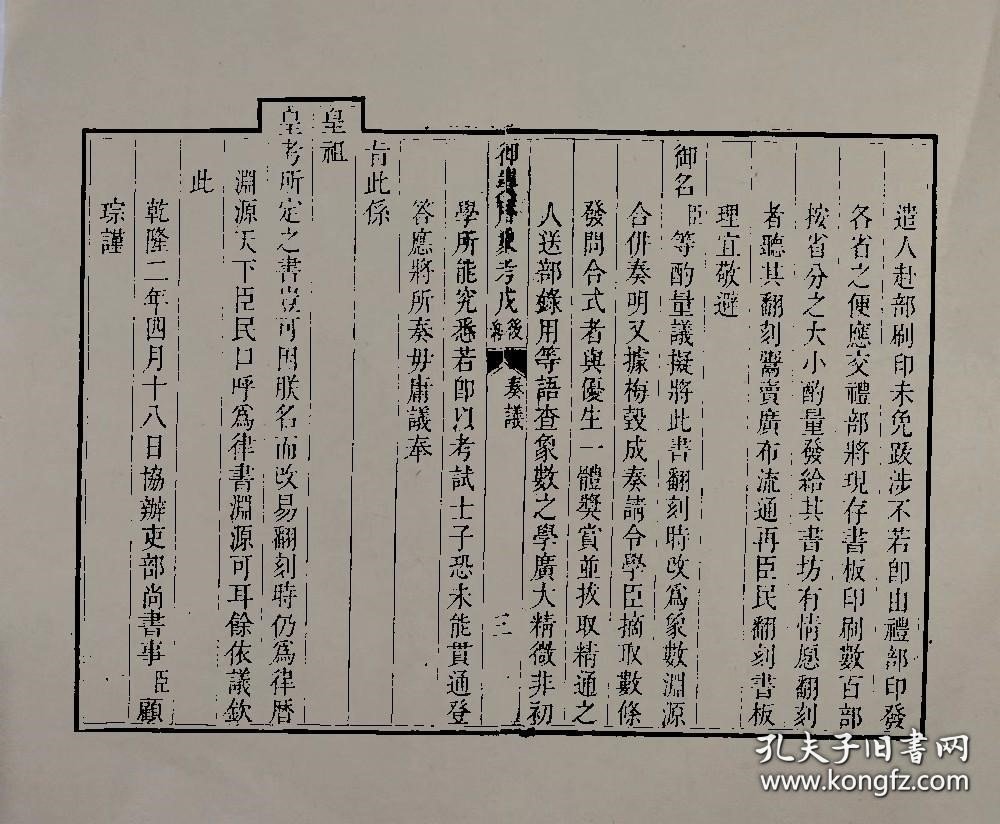 遣人赴部刷印未免跋涉不若卽由禮部印發
各省之便應交禮部將現存書板印刷數百部
按省分之大小酌量發給其書坊有情愿翻刻
者聽其翻刻鬻賣廣布流通再臣民翻刻書板
理宜敬避
御名臣等酌量議擬將此書翻刻時改爲象數淵源
合併奏明又據梅瑴成奏請令學臣摘取數條
發問合式者與優生一體獎賞並拔取精通之
人送部錄用等語查象數之學廣大精微非初
御製曆象考成後編 奏議 三
學所能究悉若卽以考試士子恐未能貫通登
答應將所奏毋庸議奉
旨此係
皇祖
皇考所定之書豈可因朕名而改易翻刻時仍爲律曆
淵源天下臣民口呼爲律書淵源可耳餘依議欽
此
乾隆二年四月十八日協辦吏部尚書事臣顧
琮謹
孔夫子旧书网
www.kongfz.com